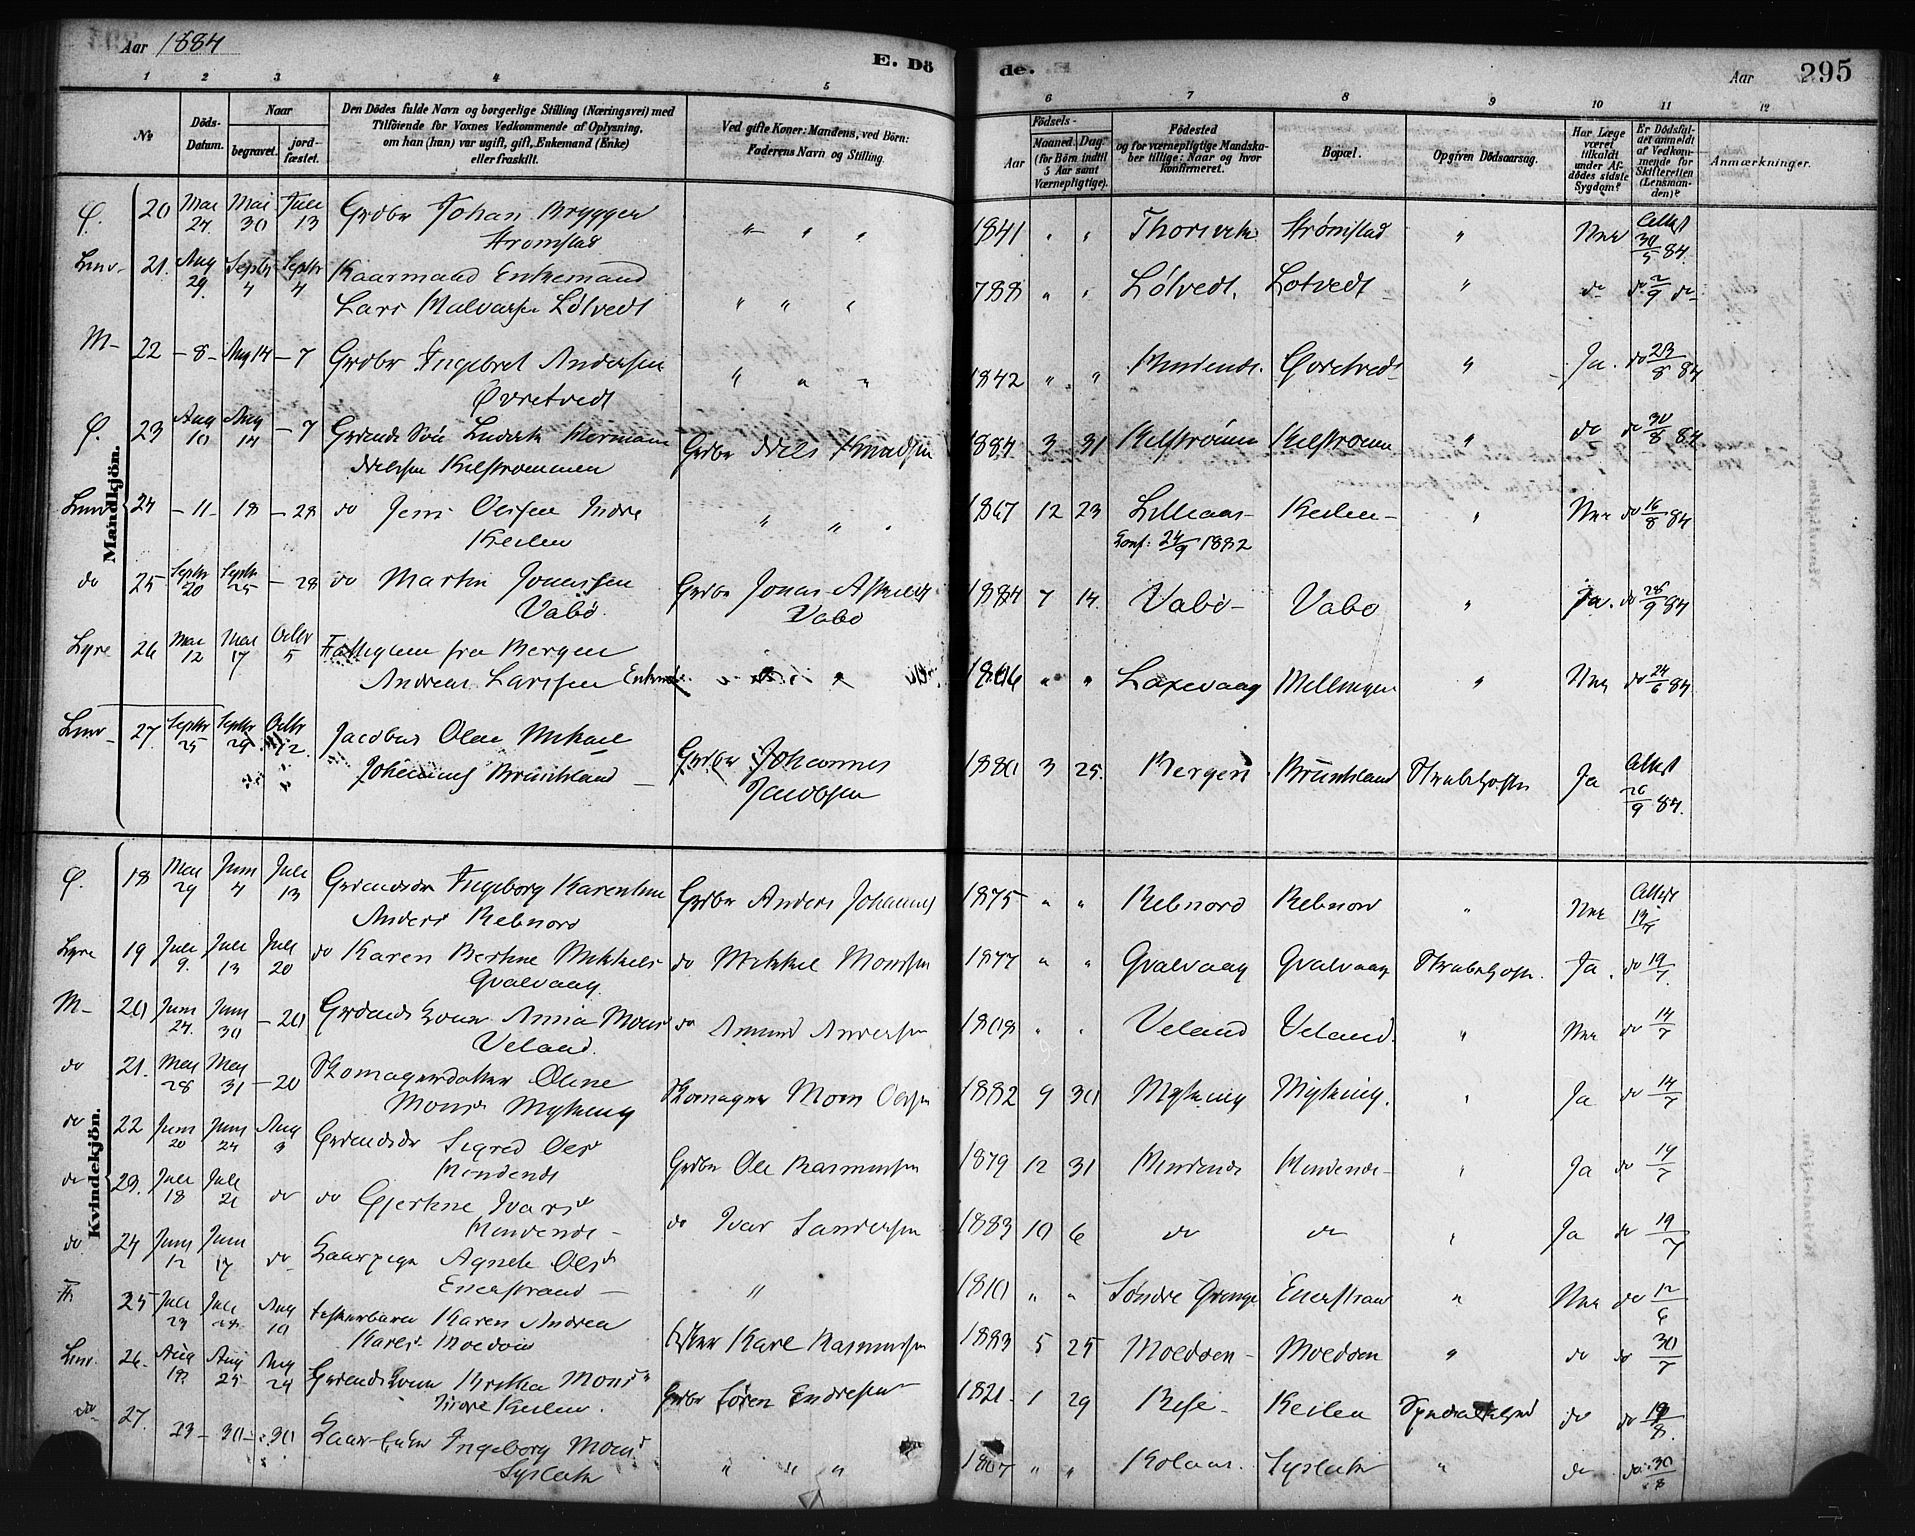 Aar 1884
E. Dö
de.
Aar
295
1 2 3 4 5 6 7 8 9 10 11 12
No
Döds-Datum.
Naar
begravet.
jord-fæstet.
Den Dödes fulde Navn og borgerlige Stilling (Næringsvei) med
Tilföiende for Voxnes Vedkommende af Oplysning,
om han (hun) var ugift, gift, Enkemand (Enke)
eller fraskilt.
Ved gifte Koner: Mandens, ved Börn:
Faderens Navn og Stilling.
Födsels-
Aar
Maaned. Dag.
(for Börn indtil
5 Aar samt
Værnepligtige).
Födested
og for værnepligtige Mandska-
ber tillige: Naar og hvor
konfirmeret.
Bopæl.
Opgiven Dödsaarsag.
Har Læge
været
tilkaldt
under Af-
dödes sidste
Sygdom?
Er Dödsfal-
det anmeldt
af Vedkom-
mende for
Skifteretten
(Lensman-
den)?
Anmærkninger.
Mandkjön.
Ø. 20 Mai 27 Mai 30 Juli 13 Grdbr Johan Brygger " " " 1841 " " Strømstad " Nei Attest 30/5 84.
Strømstad
21. Aug 29. Septbr 4 Septbr 4 Kaarmand Enkemand
Lars Lølvedt " " " 788 " " Lølvedt. Lotvedt " do do 2/9 do
M- 22 - 8 - Aug 14 - 7 Grdbr Ingebret Andersen " " " 1842 " " Mundende Øvretvedt " Ja. do 23/8 84
Øvretvedt
Ø. 23 Aug 10 Aug 14 - 7 Grdmds Søn Ludvik Hermann Grdbr Niels Knudsen 1884 3 31 Kilstrømmen Kilstrømmen " do do 30/8 84
Nielsen Kilstrømmen
24 - 11 - 18 - 28 do Jens Olsen Indre " " " 1867 12 23 Lilleaas Keilen " Nei do 16/8 84
Keilen Konf: 24/9 1882
do 25 Septbr 20 Septbr 25 - 28 do Martin Jonassen Grdbr Jonas 1884 7 14. Vabø Vabø " Ja. do 28/9 84
Vabø. Vabø
Lyre 26 Mai 12 Mai 17 Octbr 5 fra Bergen
Andreas Larssen 1806 " " Laxevaag Mellingen " Nei do 24/6 84
27. Septbr 25 Septbr 29 Octbr 12. Jacobus Olai Mikael Grdbr Johannes 1880 3 25. Bergen Ja Attest 26/9 84.
Johannes Jacobsen
Kvindekjön.
Ø. 18 Mai 29 Juni 4 Juli 13 Ingeborg Karentine Grdbr Anders Johannes 1875 " " Rebnord Rebnord " Nei Attest
Anders Rebnord
Lyre 19 Juli 9. Juli 13 Juli 20 do Karen Bertine Mikkels do Mikkel Monssen 1877 " " Qvalvaag Qvalvaag Strubehoste. Ja. do 19/7.
Qvalvaag
M- 20 Juni 24. Juni 30 - 20 Grdmds Kone Anna Mons do Amund Andersen 1808 " " Veland Veland. " Nei do 14/7
Veland.
do 21. Mai 28 Mai 31 - 20 Skomagerdatter Oline Skomager Mons Olsen 1882 9 30 Myking Myking. " Ja do 14/7
Mons Myking
do 22 Juni 20 Juni 24 Aug 3 Sigred Ols Grdbr Ole Rasmussen 1879 12 31 Mundende Mundende " Ja do 19/7
Mundende
do 23. Juli 18 Juli 21 do do Gjertine Ivars do Ivar Sandersen 1883 10 6 do do " Ja do 19/7
Mundende
do 24 Juni 12 Juni 17 do Kaarpige Agnete Ols " 1810 " " Søndre Qvinge Enerstrand " Nei do 12/6
Enerstrand
25 Juli 23 Juli 28 Aug 10 Fiskerbarn Karen Andrea Fisker Karl Rasmussen 1883 5 25 Moldøen Moldøen " do do 30/7
Karls Moldøen
26. Aug 19. Aug 25 Aug 24 Kone Mons Grdbr Søren Endresen 1821. 1 29 Keilen Spedalskhed do do 19/8.
Indre Keilen.
do 27. 23 - 30 - 30 Ingeborg Mons " " " 1807 " " Kolaas. Syslak " do do 30/8
Syslak